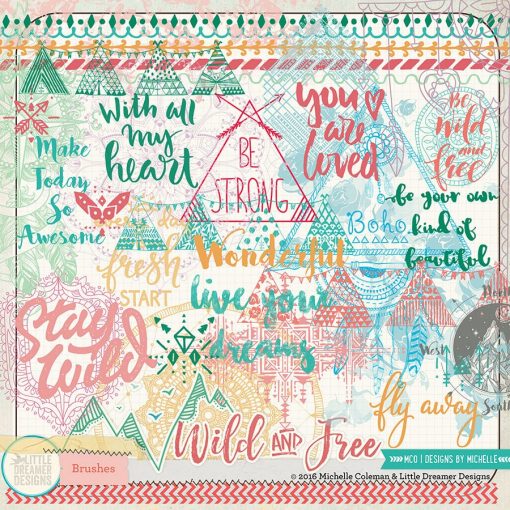 With all
my
heart
you
are
loved
Be
wild
and
free
BE
STRONG
Make
Today
So
Awesome
be your own
kind of
beautiful
Boho
fresh
START
Wonderful
live your
dreams
Stay
Wild
North
West
South
fly away
Wild AND Free
LITTLE
DREAMER
DESIGNS
Brushes
MCO | DESIGNS BY MICHELLE
© 2016 Michelle Coleman & Little Dreamer Designs